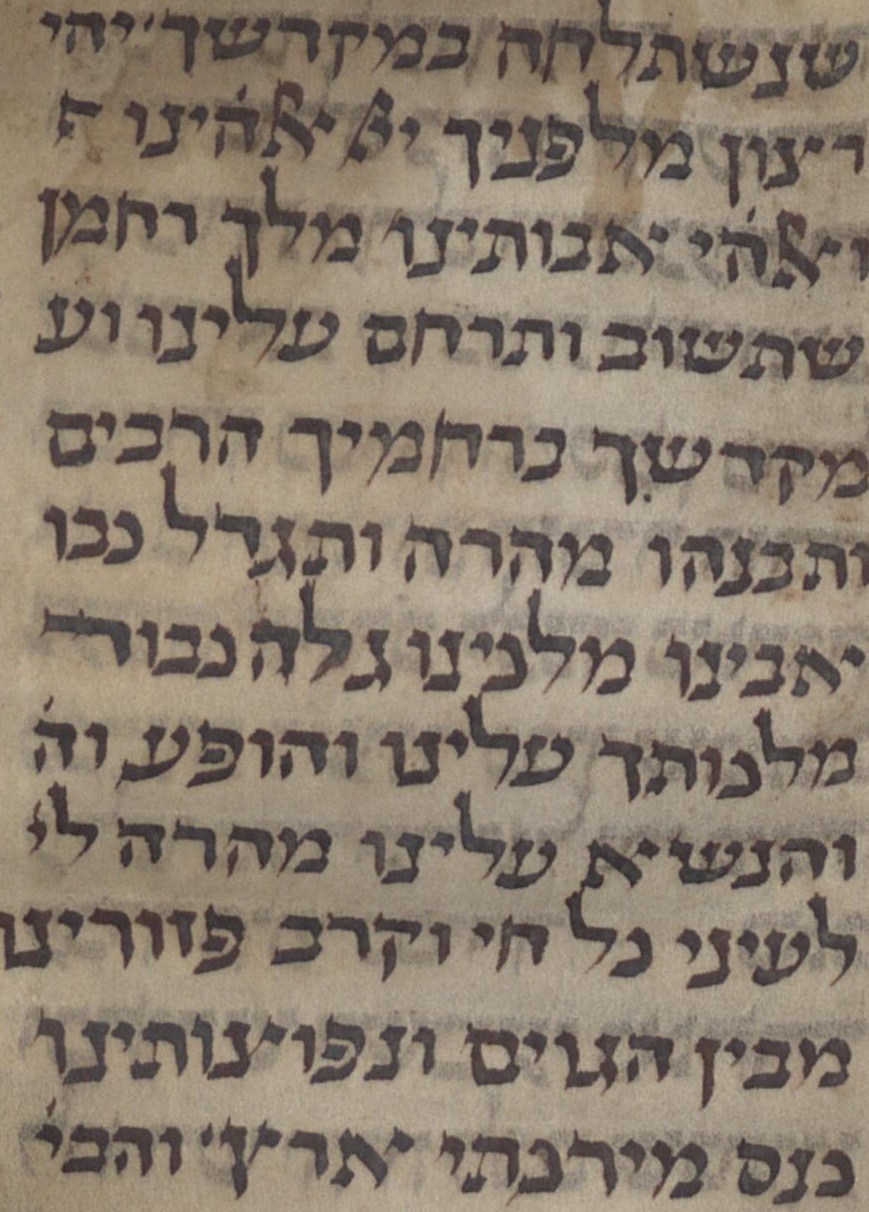 שנשתלחה במקדשך יהי
רצון מלפניך יי אלהינו
ואלהי אבותינו מלך רחמן
שתשוב ותרחם עלינו וע
מקדשך ברחמיך הרבים
ותבנהו מהרה ותגדל כבו
אבינו מלכינו גלה כבוד
מלכותך עלינו והופע וה
והנשיא עלינו מהרה לי
לעיני כל חי וקרב פזורינו
מבין הגוים ונפוצותינו
כנס מירכתי ארץ והבי